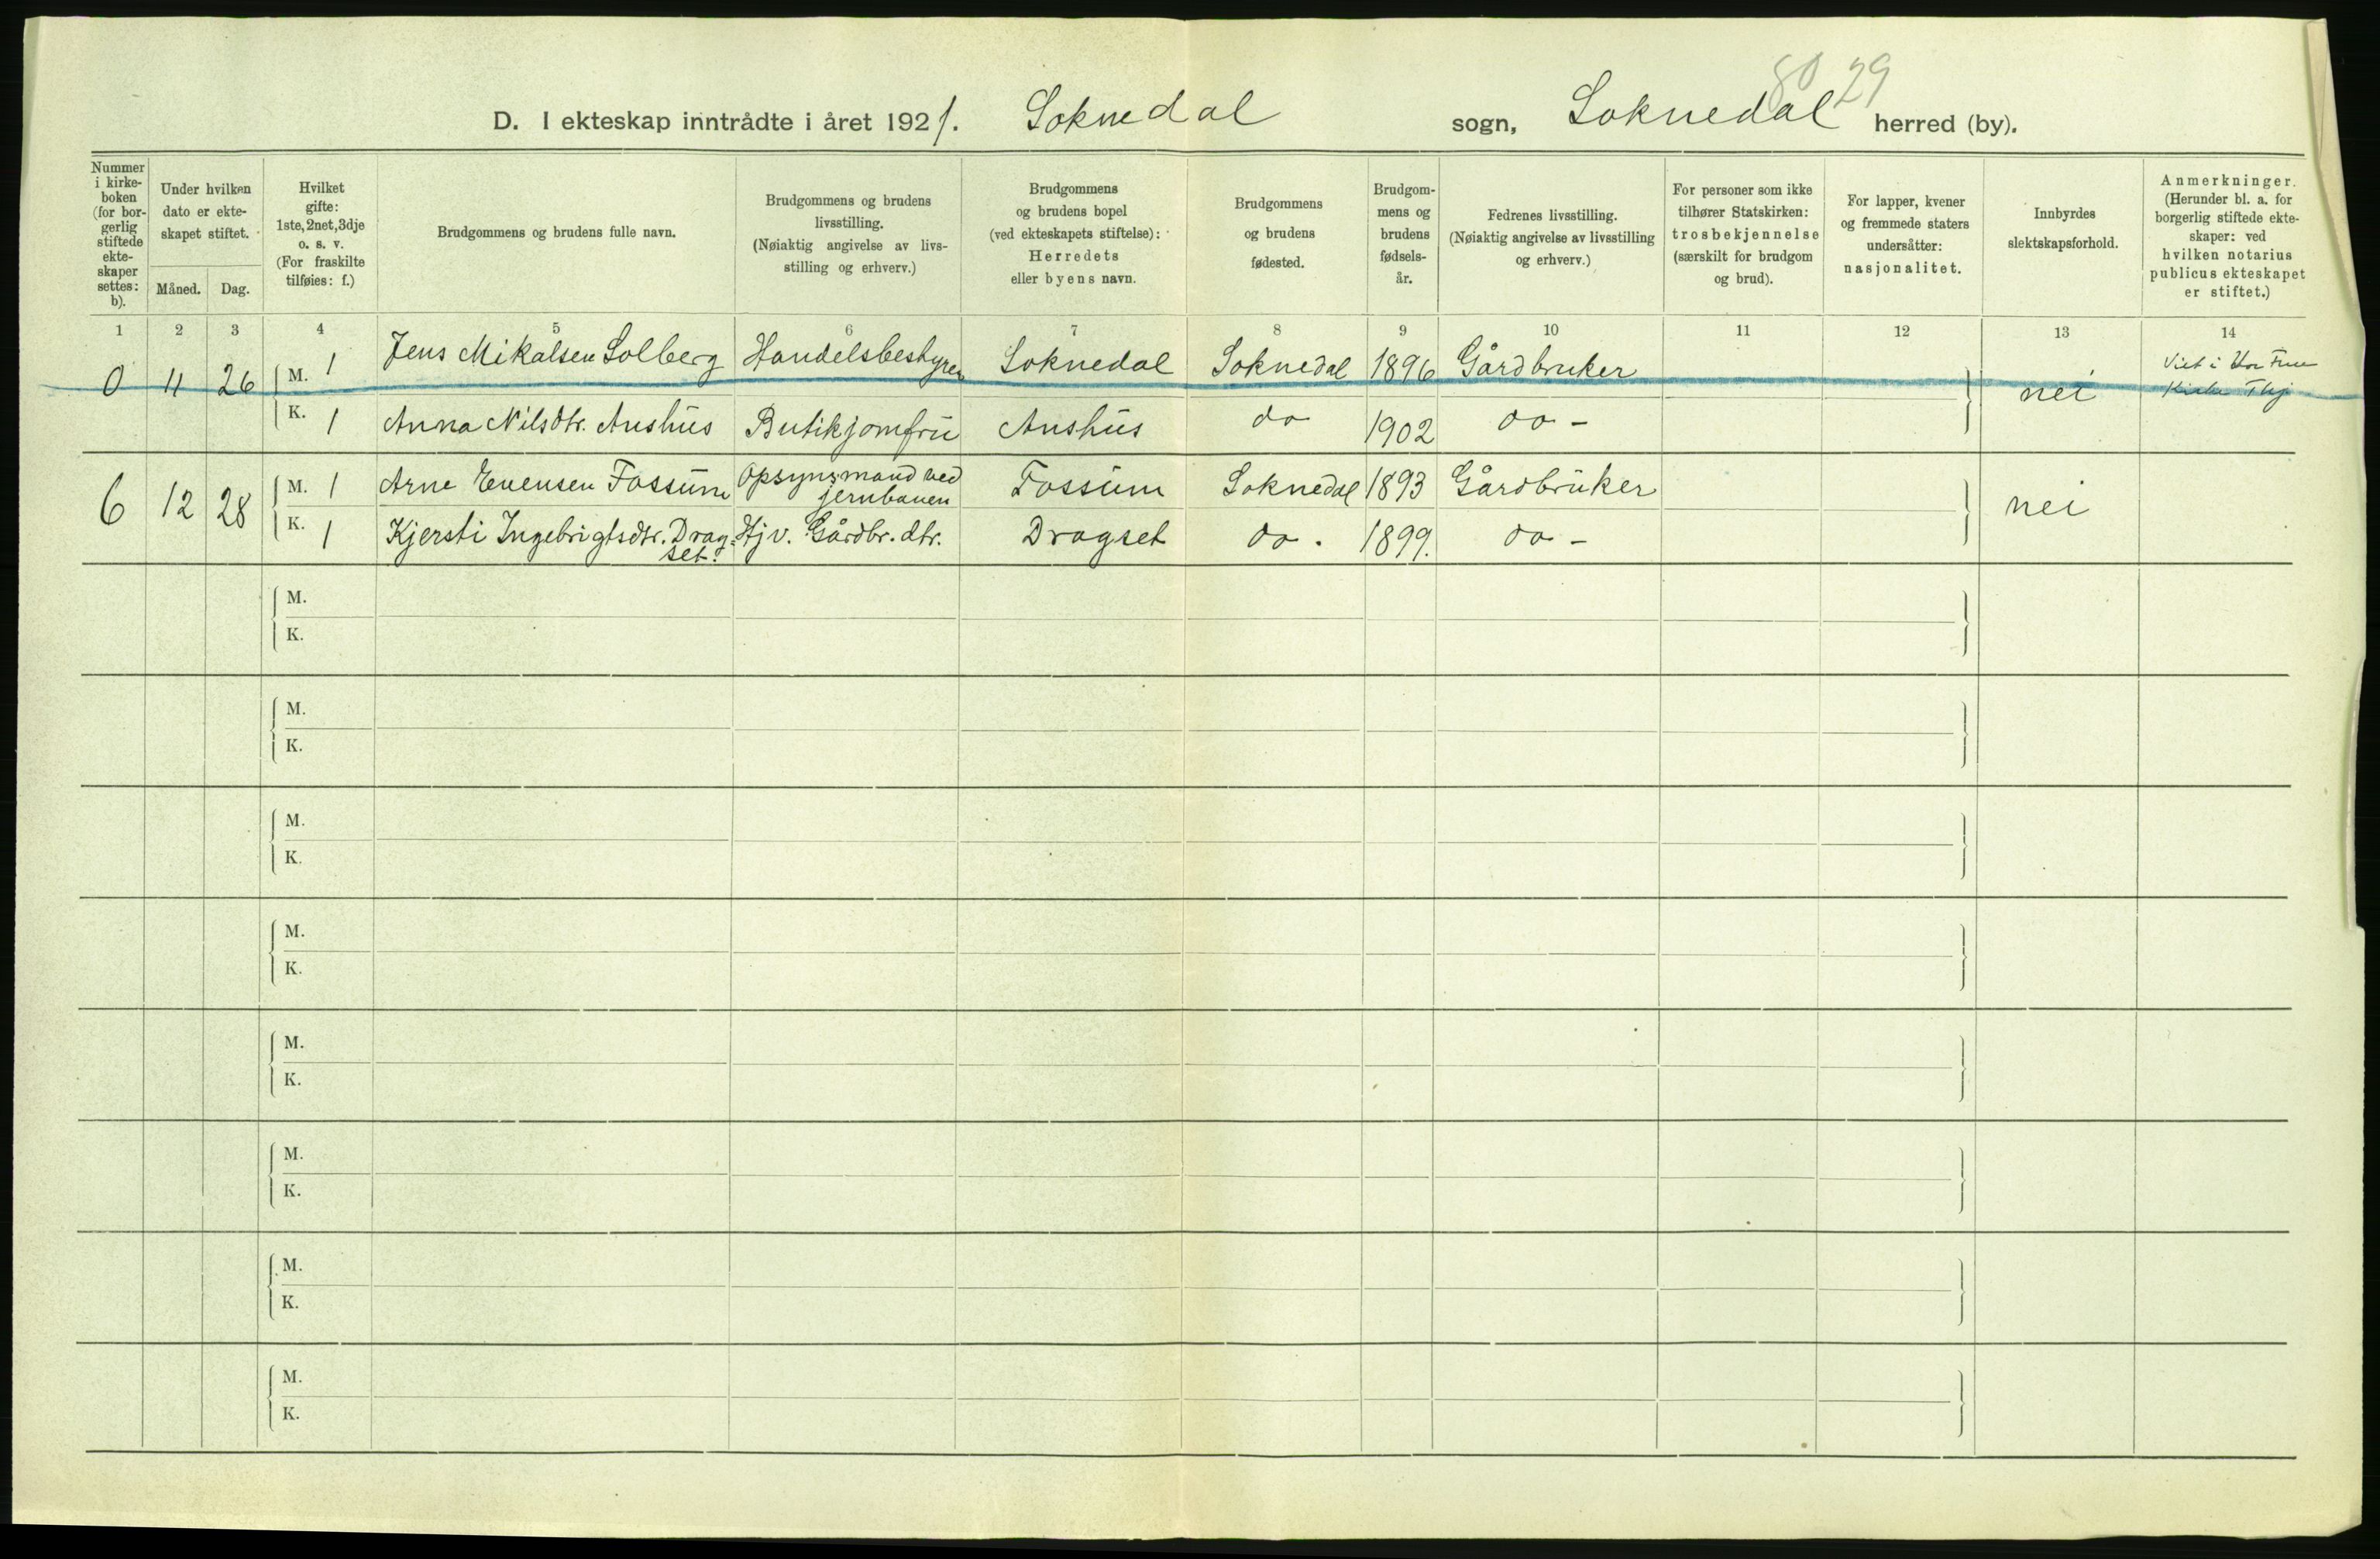 80 29
D. I ekteskap inntrådte i året 1921. Soknedal sogn, Soknedal herred (by).
Nummer
i kirke-
boken
(for bor-
gerlig
stiftede
ekte-
skaper
settes:
b).
Under hvilken
dato er ekte-
skapet stiftet.
Måned. Dag.
Hvilket
gifte:
1ste, 2net, 3dje
o. s. v.
(For fraskilte
tilføies: f.)
Brudgommens og brudens fulle navn.
Brudgommens og brudens
livsstilling.
(Nøiaktig angivelse av livs-
stilling og erhverv.)
Brudgommens
og brudens bopel
(ved ekteskapets stiftelse):
Herredets
eller byens navn.
Brudgommens
og brudens
fødested.
Brudgom-
mens og
brudens
fødsels-
år.
Fedrenes livsstilling.
(Nøiaktig angivelse av livsstilling
og erhverv.)
For personer som ikke
tilhører Statskirken:
trosbekjennelse
(særskilt for brudgom
og brud).
For lapper, kvener
og fremmede staters
undersåtter:
nasjonalitet.
Innbyrdes
slektskapsforhold.
Anmerkninger.
(Herunder bl. a. for
borgerlig stiftede ekte-
skaper: ved
hvilken notarius
publicus ekteskapet
er stiftet.)
1 2 3 4 5 6 7 8 9 10 11 12 13 14
0 11 26 M. 1 Jens Mikalsen Solberg Handelsbestyrer Soknedal Soknedal 1896 Gårdbruker nei Viet i Vor Frue
Kirke Thj
K. 1 Anna Nilsdtr. Aushus Butikjomfru Aushus do 1902 do -
6 12 28 M. 1 Arne Evensen Fossum Opsynsmand ved
jernbanen Fossum Soknedal 1893 Gårdbruker nei
K. 1 Kjersti Ingebrigtsdtr. Drag-
set. Hjv. Gårdbr. dtr. Dragset do. 1899. do -
M.
K.
M.
K.
M.
K.
M.
K.
M.
K.
M.
K.
M.
K.
M.
K.